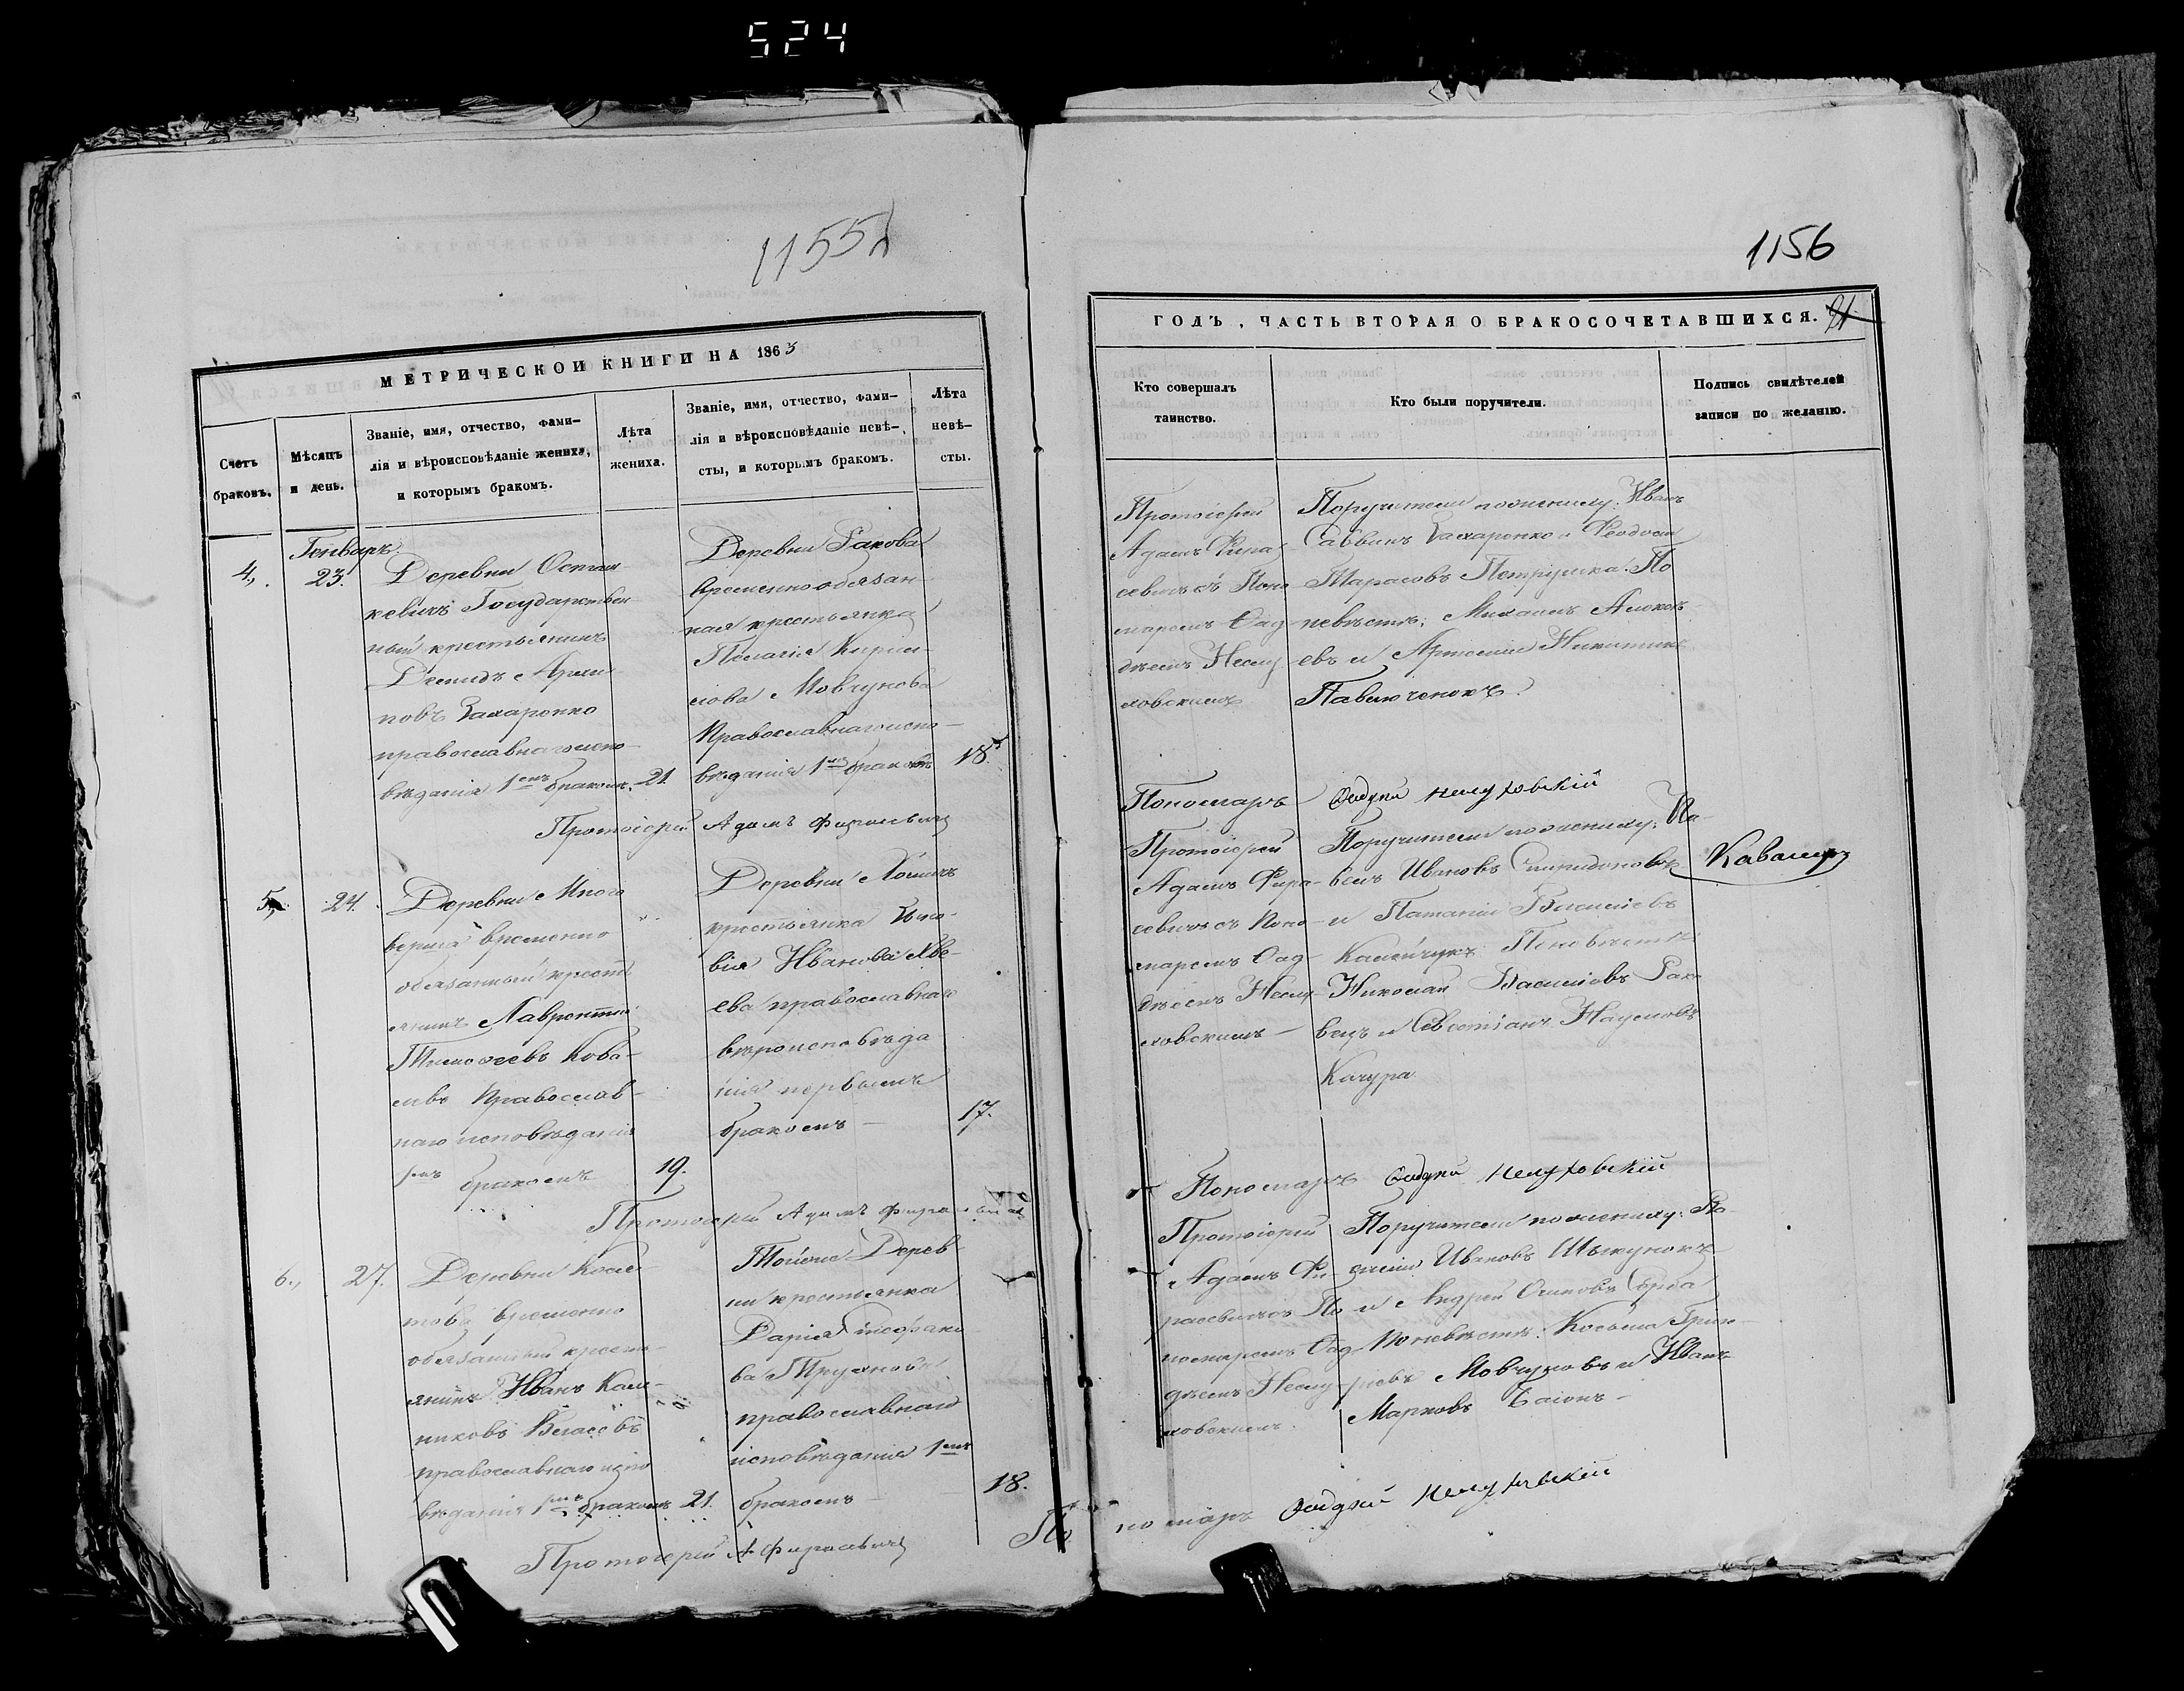 524
1155
МЕТРИЧЕСКОЙ КНИГИ НА 1863
Счетъ браковъ.
Мѣсяцъ и день.
Званіе, имя, отчество, фами-
лія и вѣроисповѣданіе жениха,
и которымъ бракомъ.
Лѣта
жениха.
Званіе, имя, отчество, фами-
лія и вѣроисповѣданіе невѣ-
сты, и которымъ бракомъ.
Лѣта
невѣ-
сты.
4.
Генварь.
23.
Деревни Осташ-
кевичъ Государствен
ный крестьянинъ
Демидъ
новъ Захаренко
православнаго испо-
вѣданія 1емъ бракомъ.
21
Деревни Ракова
временнообязан-
ная крестьянка
Пелагія Кирил-
лова Мовчунова
Православнаго испо-
вѣданія 1мъ бракомъ
18.
Протоіерей Адамъ Фирасевичъ
5,
24.
Деревни Много
верша временно
обязанный крестья-
янинъ Лаврентій
Тимофеевъ Кова-
левъ Православ-
наго исповѣданія
1мъ бракомъ
19.
Деревни
крестьянка Зино-
вія Иванова Хве-
ева православнаго
вѣроисповѣда
нія первымъ
бракомъ —
17.
Протоіерей Адамъ Фирасевичъ
6.,
27.
Деревни
това временно
обязанный кресть-
янинъ Иванъ Кали-
никовъ Власовъ
православнаго испо
вѣданія 1мъ бракомъ
21.
Тойже Дерев-
ни крестьянка
Дарія Стефано
ва
православнаго
исповѣданія 1мъ
бракомъ —
18.
Протоіерей А Фирасевичъ
1156
ГОДЪ, ЧАСТЬ ВТОРАЯ О БРАКОСОЧЕТАВШИХСЯ.
91
Кто совершалъ
таинство.
Кто были поручители.
Подпись свидѣтелей
записи по желанію.
Протоіерей
Адамъ Фира-
севичъ съ Поно
маремъ Фад-
дѣемъ Нелу
ховскимъ
Поручители по жениху: Иванъ
Саввинъ Захаренко и Феодосій
Марковъ Петрушка. По
невѣстѣ: Михаилъ Алексѣ-
евъ и Артемій Никитинъ
Павлюченокъ.
Пономарь Фадѣй Нелуховскій
Протоіерей
Адамъ Фира-
севичъ съ Поно-
маремъ Фад-
дѣемъ Нелу-
ховскимъ —
Поручители по жениху: Па-
велъ Ивановъ Спиридоновъ
и Василіевъ
По невѣстѣ
Николай Василіовъ Рако
вецъ и Севостіанъ Наумовъ
Качура
Кавалеръ
Пономарь Фадѣй Нелуховскій
Протоіерей
Адамъ Фи-
расевичъ съ По
номаремъ Фад-
дѣемъ Нелу-
ховскимъ.
Поручители по жениху: Ва-
силій Ивановъ
и Андрей Осиповъ
По невѣстѣ: Косьма Григо-
ріевъ Мовчуновъ и Иванъ
Марковъ —
Пономарь Фадѣй Нелуховскій